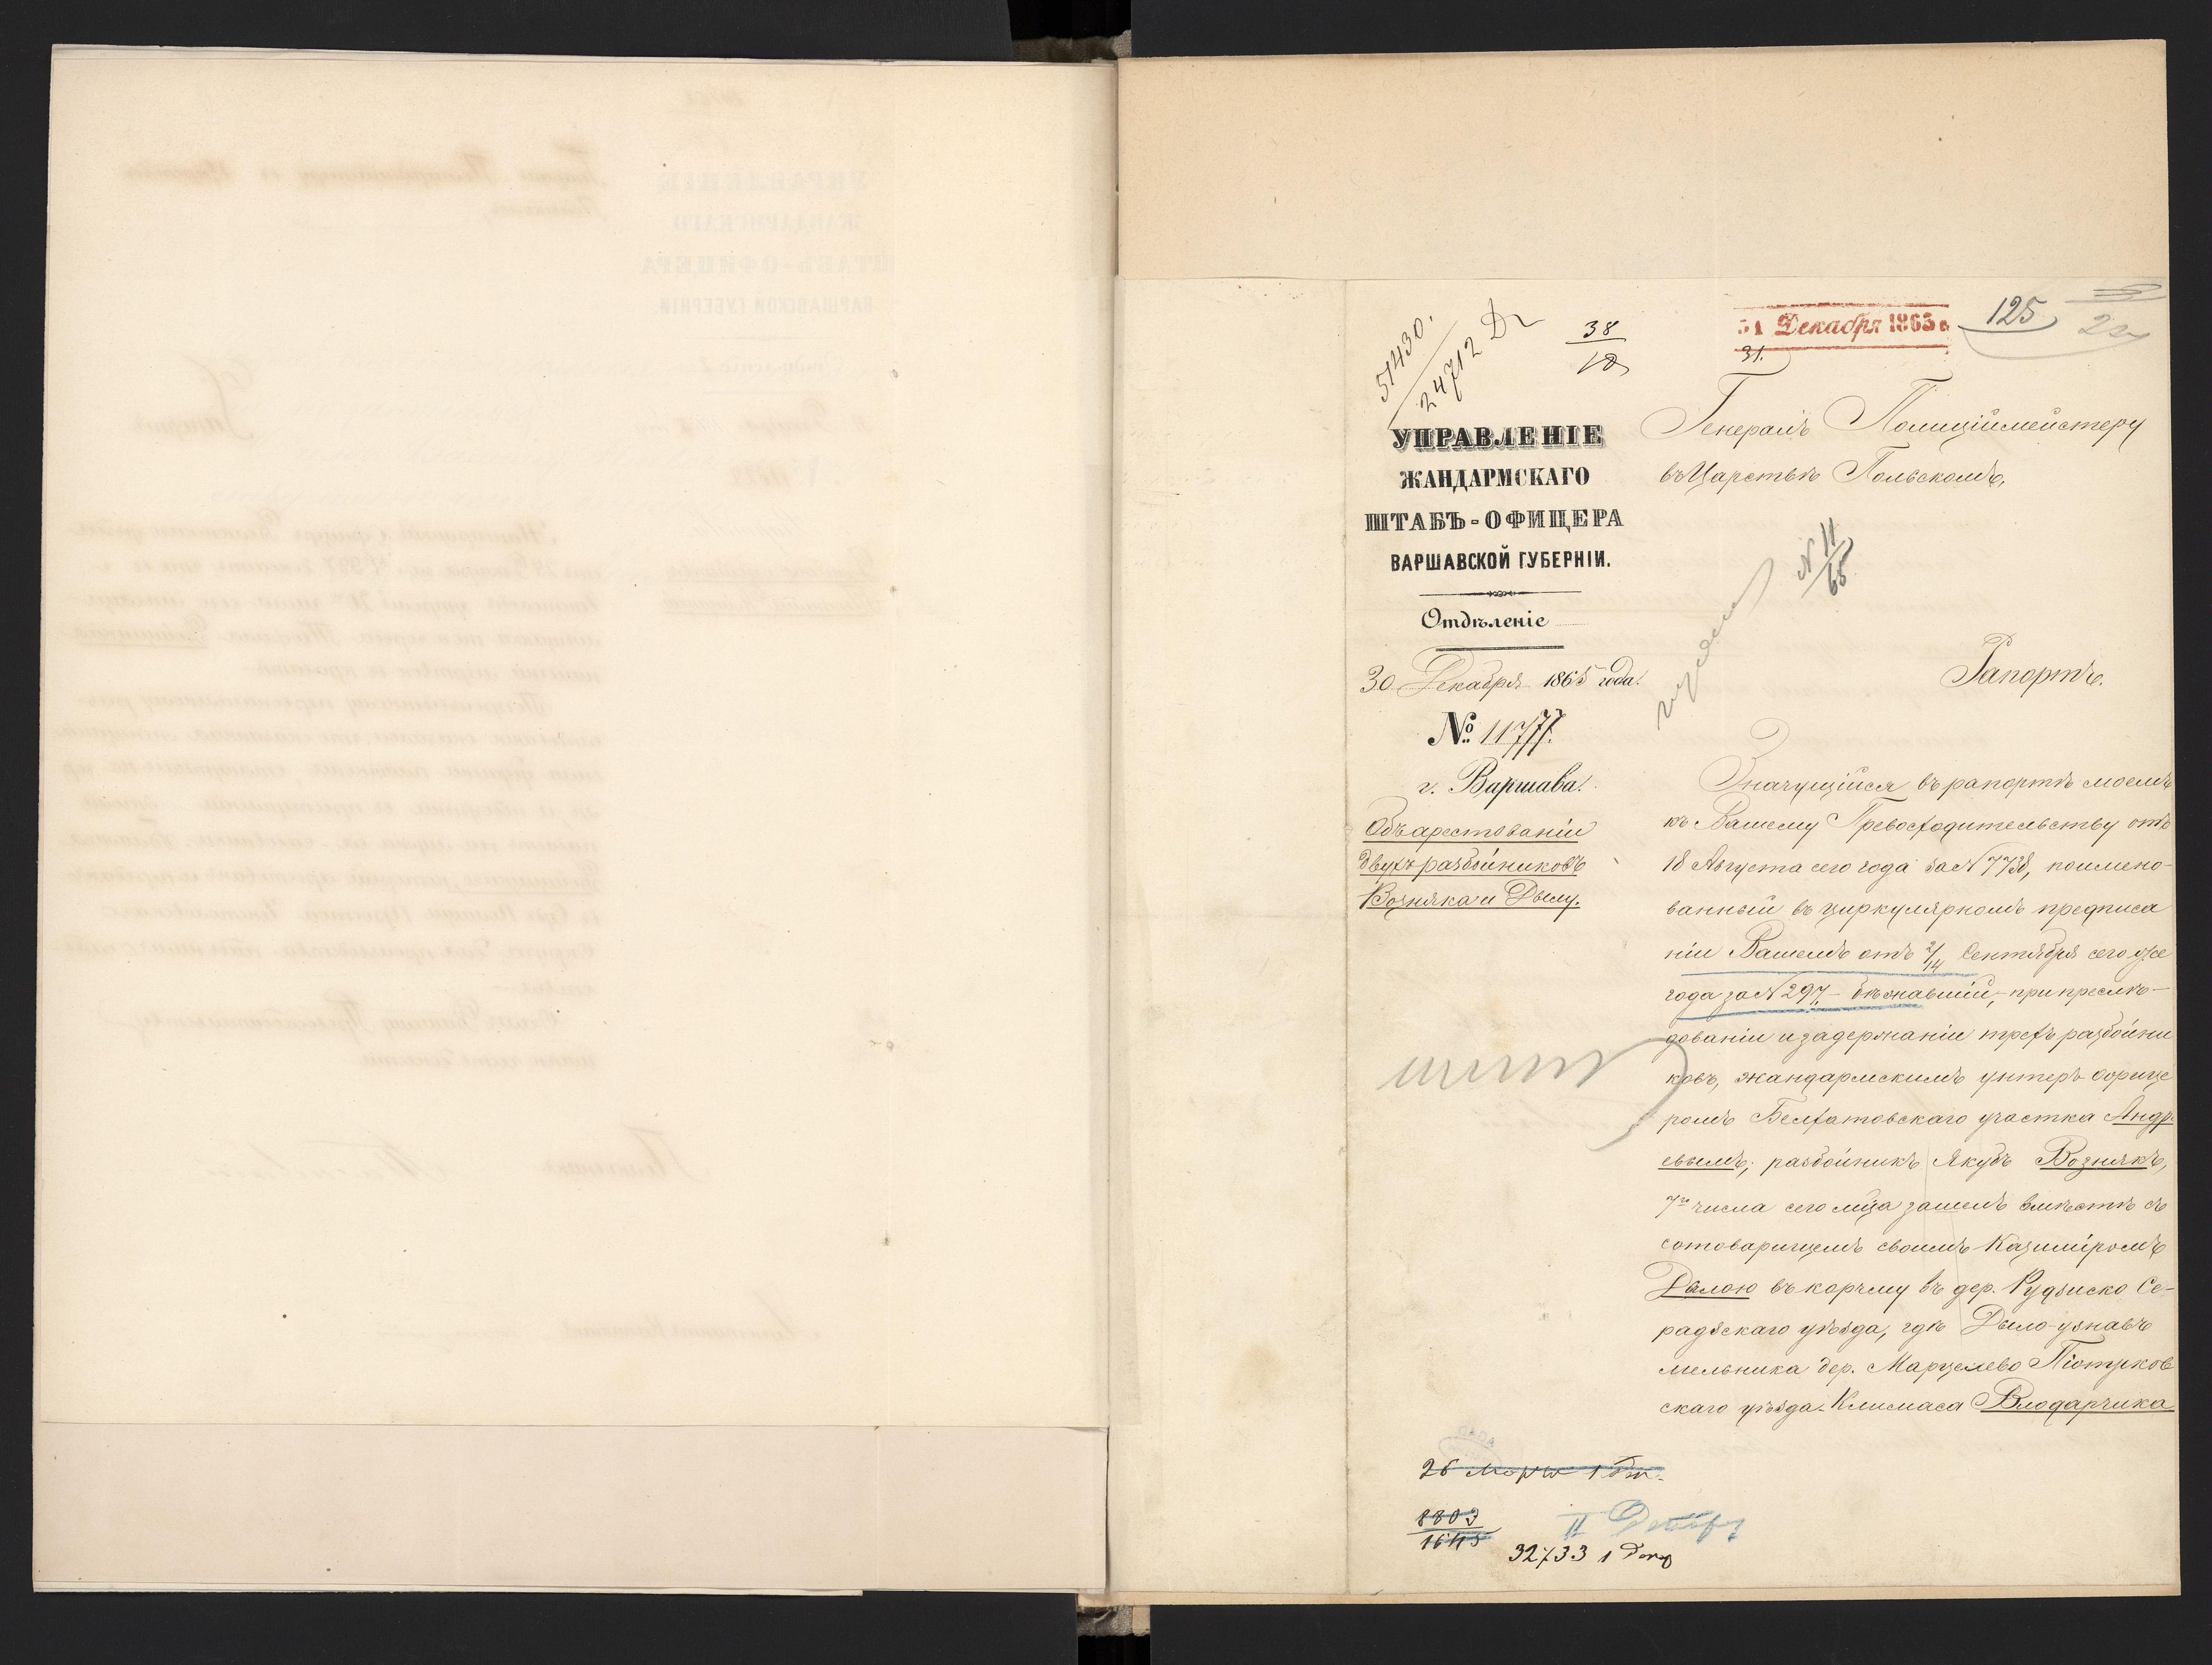 51430.
24712 Дг
38
12
31 Декабря 1865 г.
31.
125
Генералъ Полиціймейстеру
въ Царствѣ Польскомъ.
УПРАВЛЕНІЕ
ЖАНДАРМСКАГО
ШТАБЪ-ОФИЦЕРА
ВАРШАВСКОЙ ГУБЕРНІИ.
Отдѣленіе
30 Декабря 1865 года.
№ 11777.
г. Варшава.
Объ арестованіи
двухъ разбойниковъ
Возняка и Дылу.
N 11/65
Рапортъ.
Значущійся въ рапортѣ моемъ
къ Вашему Превосходительству отъ
18 Августа сего года за N 7738, поимено-
ванный въ циркулярномъ предписа
ніи Вашемъ отъ 2/14 Сентября сего же
года за N 297 – бѣжавшій, при преслѣ-
дованіи и задержаніи трехъ разбойни
ковъ, жандармскимъ унтеръ офице
ромъ Белхатовскаго участка Андр-
евымъ, разбойникъ Якубъ Вознякъ,
7го числа сего мца зашелъ вмѣстѣ съ
сотоварищемъ своимъ Казиміромъ
Дылою въ корчму въ дер. Рудзиско Се-
радзскаго уѣзда, гдѣ Дыло узнавъ
мельника дер. Марцелево Піотрков
скаго уѣзда Климаса Влодарчика
8803
1645
32733 1